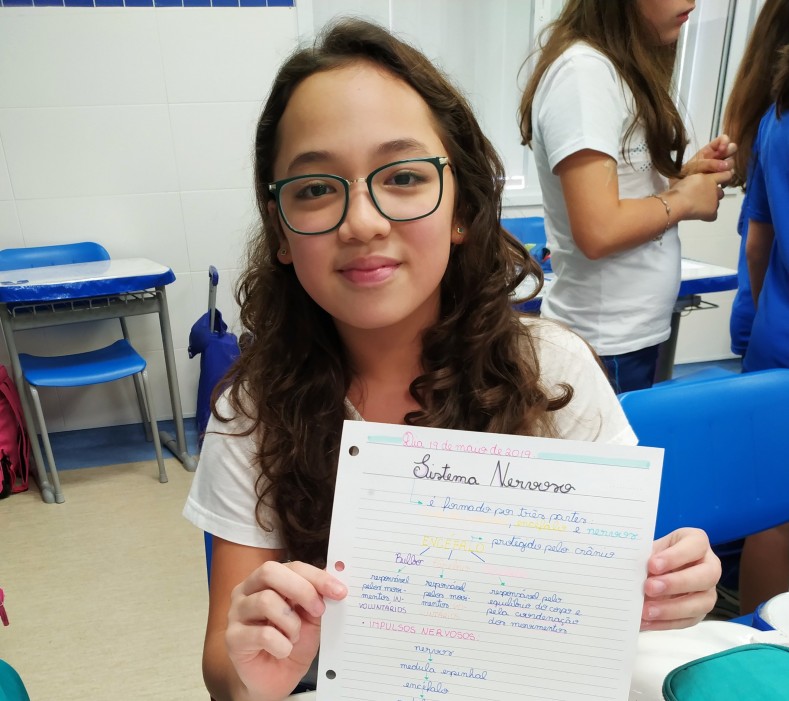 Dia 19 de maio de 2019
Sistema Nervoso
é formado por três partes
, encéfalo e nervos
ENCÉFALO protegido pelo crânio
Bulbo
responsável pelos movi-mentos IN-VOLUNTÁRIOS
responsável pelos movi-mentos
responsável pelo equilíbrio do corpo e pela coordenação dos movimentos
• IMPULSOS NERVOSOS
nervos
medula espinhal
encéfalo